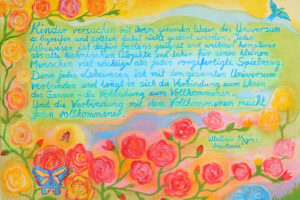 Kinder versuchen mit ihrem gesamten Wesen das Universum
zu begreifen und sollten dabei nicht gestört werden. Jedes
Lebewesen ist dafür bestens geeignet und weitaus komplexer
als alle technischen Objekte und daher für einen kleinen
Menschen viel wichtiger als jedes vorgefertigte Spielzeug.
Denn jedes Lebewesen ist mit dem gesamten Universum
verbunden und trägt in sich die Verbindung zum Wesen
des Ganzen - die Verbindung zum Vollkommenen.
Und die Verbindung mit dem Vollkommenen macht
jeden vollkommener.
Wladimir Megre,
"Anastasia"